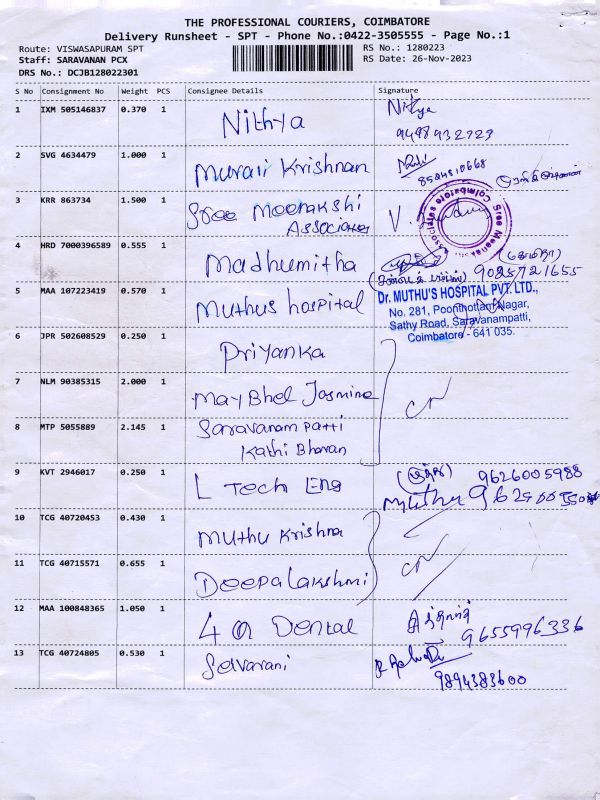 THE PROFESSIONAL COURIERS, COIMBATORE
Delivery Runsheet - SPT - Phone No.:0422-3505555 - Page No.:1
Route: VISWASAPURAM SPT
Staff: SARAVANAN PCX
DRS No.: DCJB128022301
RS No.: 1280223
RS Date: 26-Nov-2023
S No Consignment No Weight PCS Consignee Details Signature
1 IXM 505146837 0.370 1 Nithya Nithya
9498932723
2 SVG 4634479 1.000 1 Murali Krishnan
8524810668
3 KRR 863734 1.500 1 Sree Meenakshi
Associates
Coimbatore
4 HRD 7000396589 0.555 1 Madhumitha
9025721655
5 MAA 107223419 0.570 1 Muthus hospital
Dr. MUTHU'S HOSPITAL PVT. LTD.,
No. 281, Poonthottam Nagar,
Sathy Road, Saravanampatti,
Coimbatore - 641 035.
6 JPR 502608529 0.250 1 Priyanka
7 NLM 90385315 2.000 1 MayBhel Jasmine
8 MTP 5055889 2.145 1 Saravanam Patti
Kathi Bhavan
9 KVT 2946017 0.250 1 L Tech Eng
9626005988
10 TCG 40720453 0.430 1 Muthu Krishna
11 TCG 40715571 0.655 1 Deepalakshmi
12 MAA 100848365 1.050 1 4 Dental
9655996336
13 TCG 40724805 0.530 1 Selvarani
9894383600